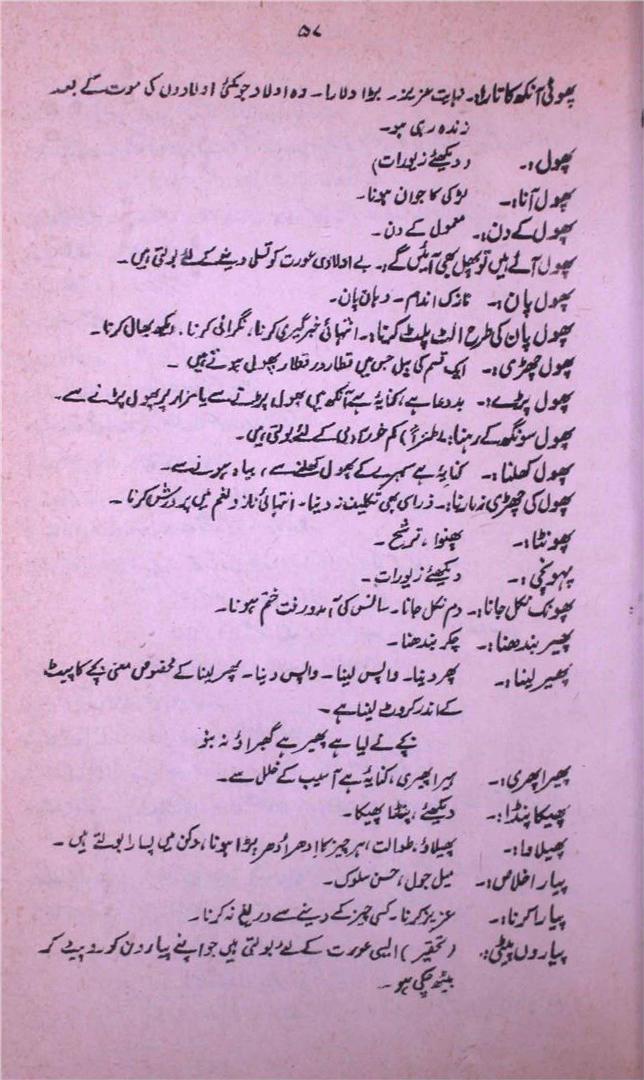 ۵۷
پھوٹی آنکھ کا تارا:۔ نہایت عزیز۔ بڑا دلارا۔ وہ اولاد جو کئی اولادوں کی موت کے بعد
زندہ رہی ہو۔
پھول:۔ (دیکھئے زیورات)
پھول آنا:۔ لڑکی کا جوان ہونا۔
پھول کے دن:۔ معمول کے دن۔
پھول آئے ہیں تو پھل بھی آئیں گے:۔ بے اولادی عورت کو تسلی دینے کے لئے بولتی ہیں۔
پھول پان:۔ نازک اندام۔ دہان پان۔
پھول پان کی طرح الٹ پلٹ کرنا:۔ انتہائی خبرگیری کرنا، نگرانی کرنا، دیکھ بھال کرنا۔
پھول چھڑی:۔ ایک قسم کی بیل جس میں قطار در قطار پھول ہوتے ہیں۔
پھول پڑے:۔ بددعا ہے، کنایۃً ہے آنکھ میں پھول پڑنے سے یا مزار پر پھول پڑنے سے۔
پھول سونگھ کے رہنا:۔ (طنزاً) کم خور آدمی کے لئے بولتی ہیں۔
پھول کھلنا:۔ کنایۃً ہے سہرے کے پھول کھلنے سے، بیاہ ہونے سے۔
پھول کی چھڑی نہ مارنا:۔ ذرا سی بھی تکلیف نہ دینا۔ انتہائی ناز و نعم میں پرورش کرنا۔
پھونٹا:۔ پھنوا، ترشح۔
پہونچی:۔ دیکھئے زیورات۔
پھونک نکل جانا:۔ دم نکل جانا۔ سانس کی آمد و رفت ختم ہونا۔
پھیر بندھنا:۔ چکر بندھنا۔
پھیر لینا:۔ پھر دینا۔ واپس لینا۔ واپس دینا۔ پھیر لینا کے مخصوص معنی بچے کا پیٹ
کے اندر کروٹ لینا ہے۔
بچے نے لیا ہے پھیر ہے گھبراؤ نہ بنو
پھیرا پھری:۔ ہیرا پھیری، کنایۃً ہے آسیب کے خلل سے۔
پھیکا پنڈا:۔ دیکھئے، پنڈا پھیکا۔
پھیلاوا:۔ پھیلاؤ، طوالت، ہر چیز کا ادھر اُدھر پڑا ہونا، دکن میں پسارا بولتے ہیں۔
پیار اخلاص:۔ میل جول، حسن سلوک۔
پیارا کرنا:۔ عزیز کرنا۔ کسی چیز کے دینے سے دریغ نہ کرنا۔
پیاروں پیٹی:۔ (تحقیر) ایسی عورت کے لئے بولتی ہیں جو اپنے پیاروں کو رو پیٹ کر
بیٹھ چکی ہو۔